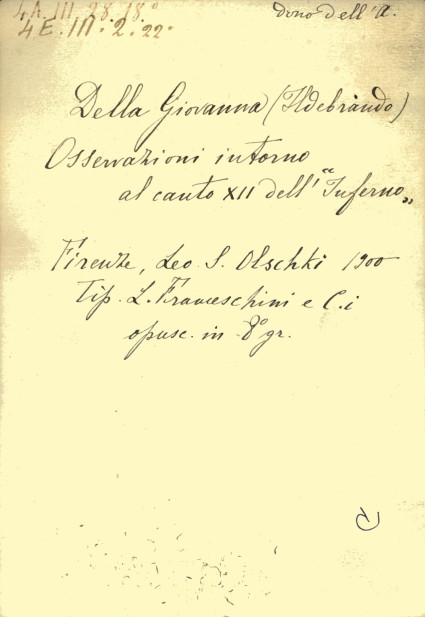 4.A.III.28.18º
dono dell'A.
4E.III.2.22.
Della Giovanna (Ildebrando)
Osservazioni intorno
al canto XII dell' "Inferno"
Firenze, Leo S. Olschki 1900
Tip. L. Franceschini e C.i
opusc. in 8º gr.